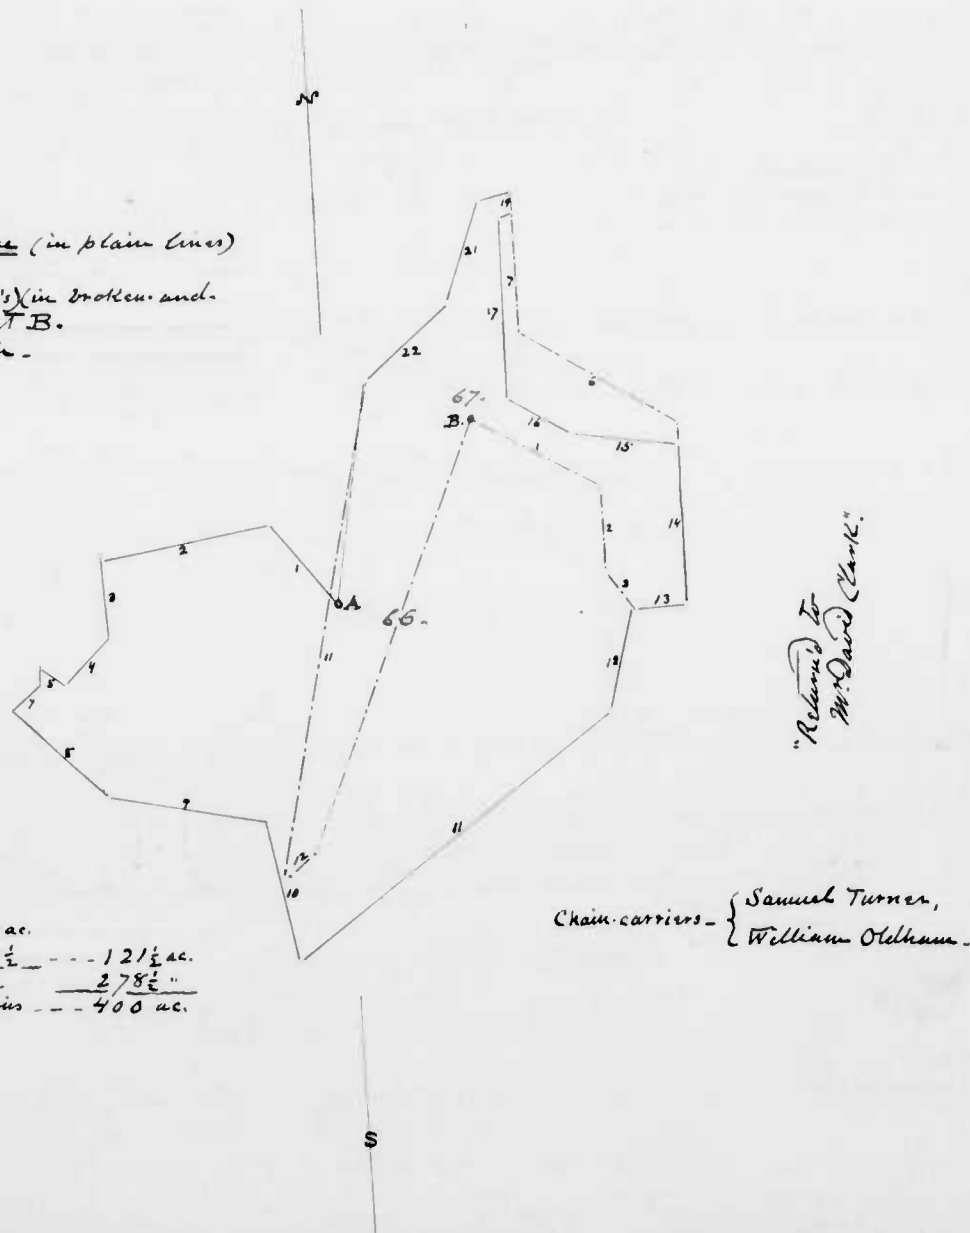 N
(in plain lines)
's) (in broken-and-
T B.
19
21
7
17
22
6
67.
B.
16
15
1
2
14
2
1
3
A
3
13
66.
11
4
12
5
7
8
11
9
12
10
"Return'd to
Mr. David Clark".
Chain-carriers - { Samuel Turner,
William Oldham -
ac.
1/2 --- 121 1/2 ac.
278 1/2 "
--- 400 ac.
S